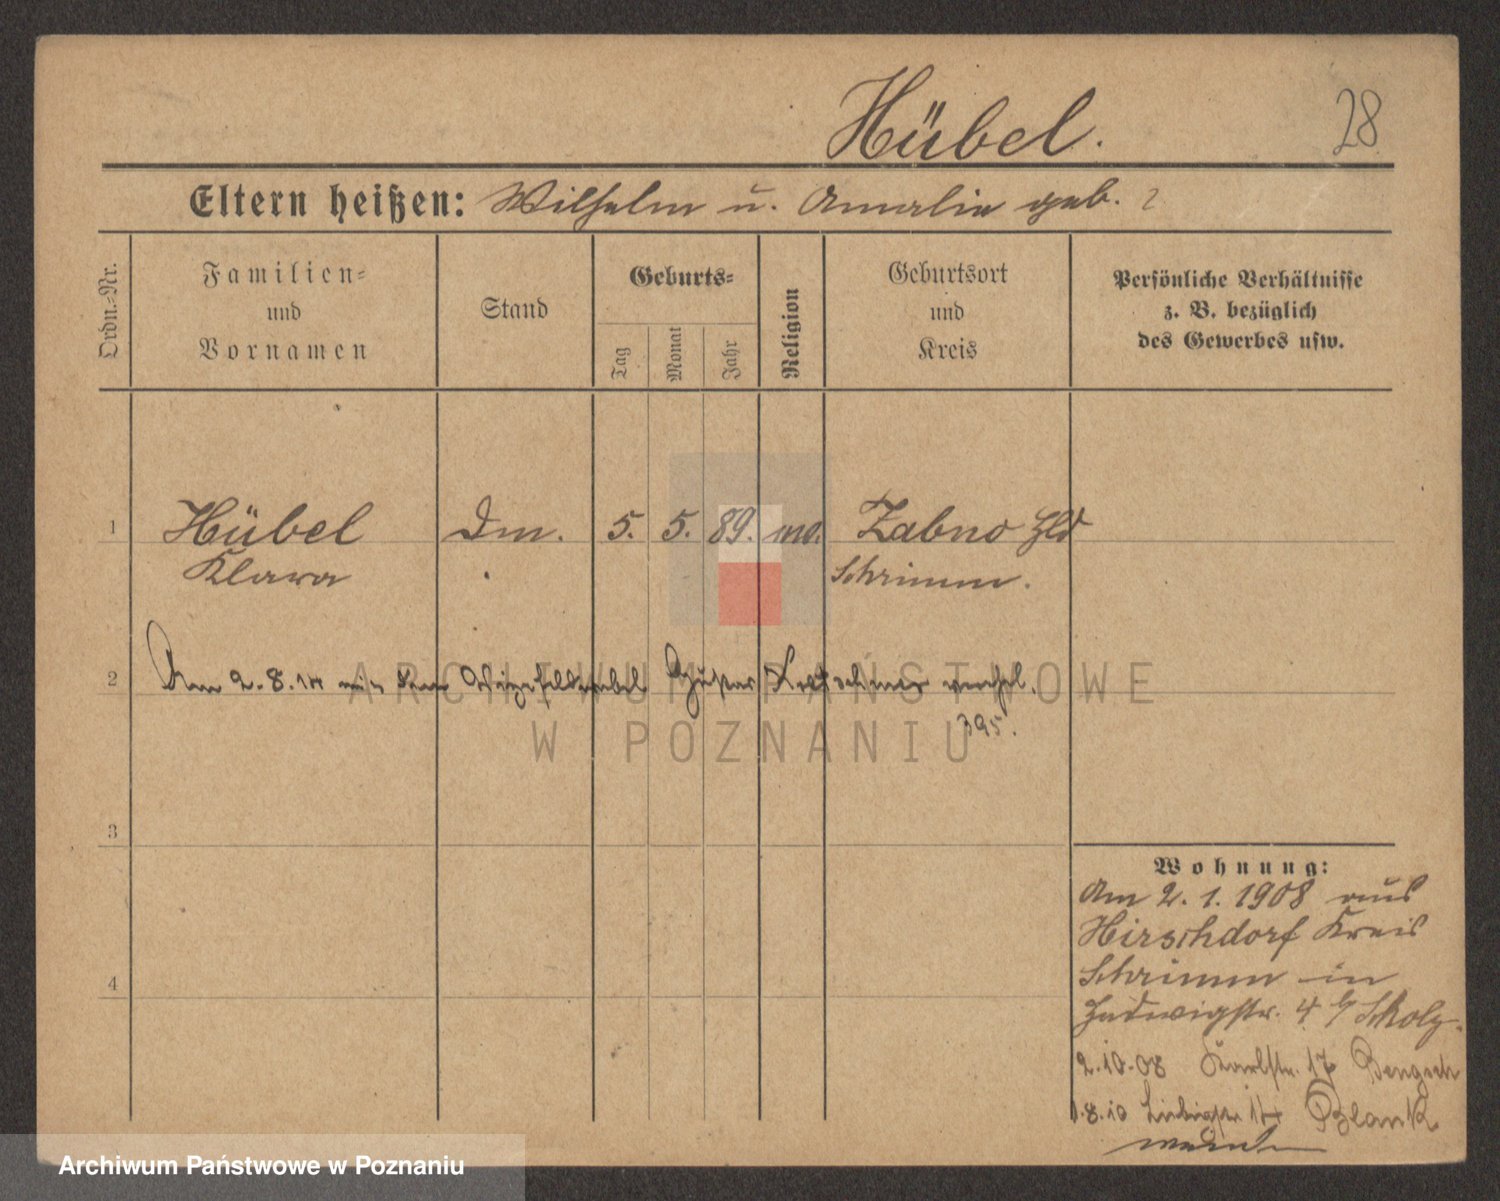 Hübel.
28
Eltern heißen: Wilhelm u. Amalie geb. ?
Ordn.=Nr.
Familien=
und
Vornamen
Stand
Geburts=
Tag
Monat
Jahr
Religion
Geburtsort
und
Kreis
Persönliche Verhältnisse
z. B. bezüglich
des Gewerbes usw.
1 Hübel Dm. 5. 5. 89. Zabno Hld
Klara Schrimm.
2 Am 2.8. mit dem Vizefeldwebel Gustav verehel.
395.
ARCHIWUM PAŃSTWOWE
W POZNANIU
3
4
Wohnung:
Am 2. 1. 1908 aus
Hirschdorf Kreis
Schrimm in
Hedwigstr. 4 b/ Scholz.
2.10.08 Karlstr. 17 Bengsch
1.8.10 Blank
Archiwum Państwowe w Poznaniu